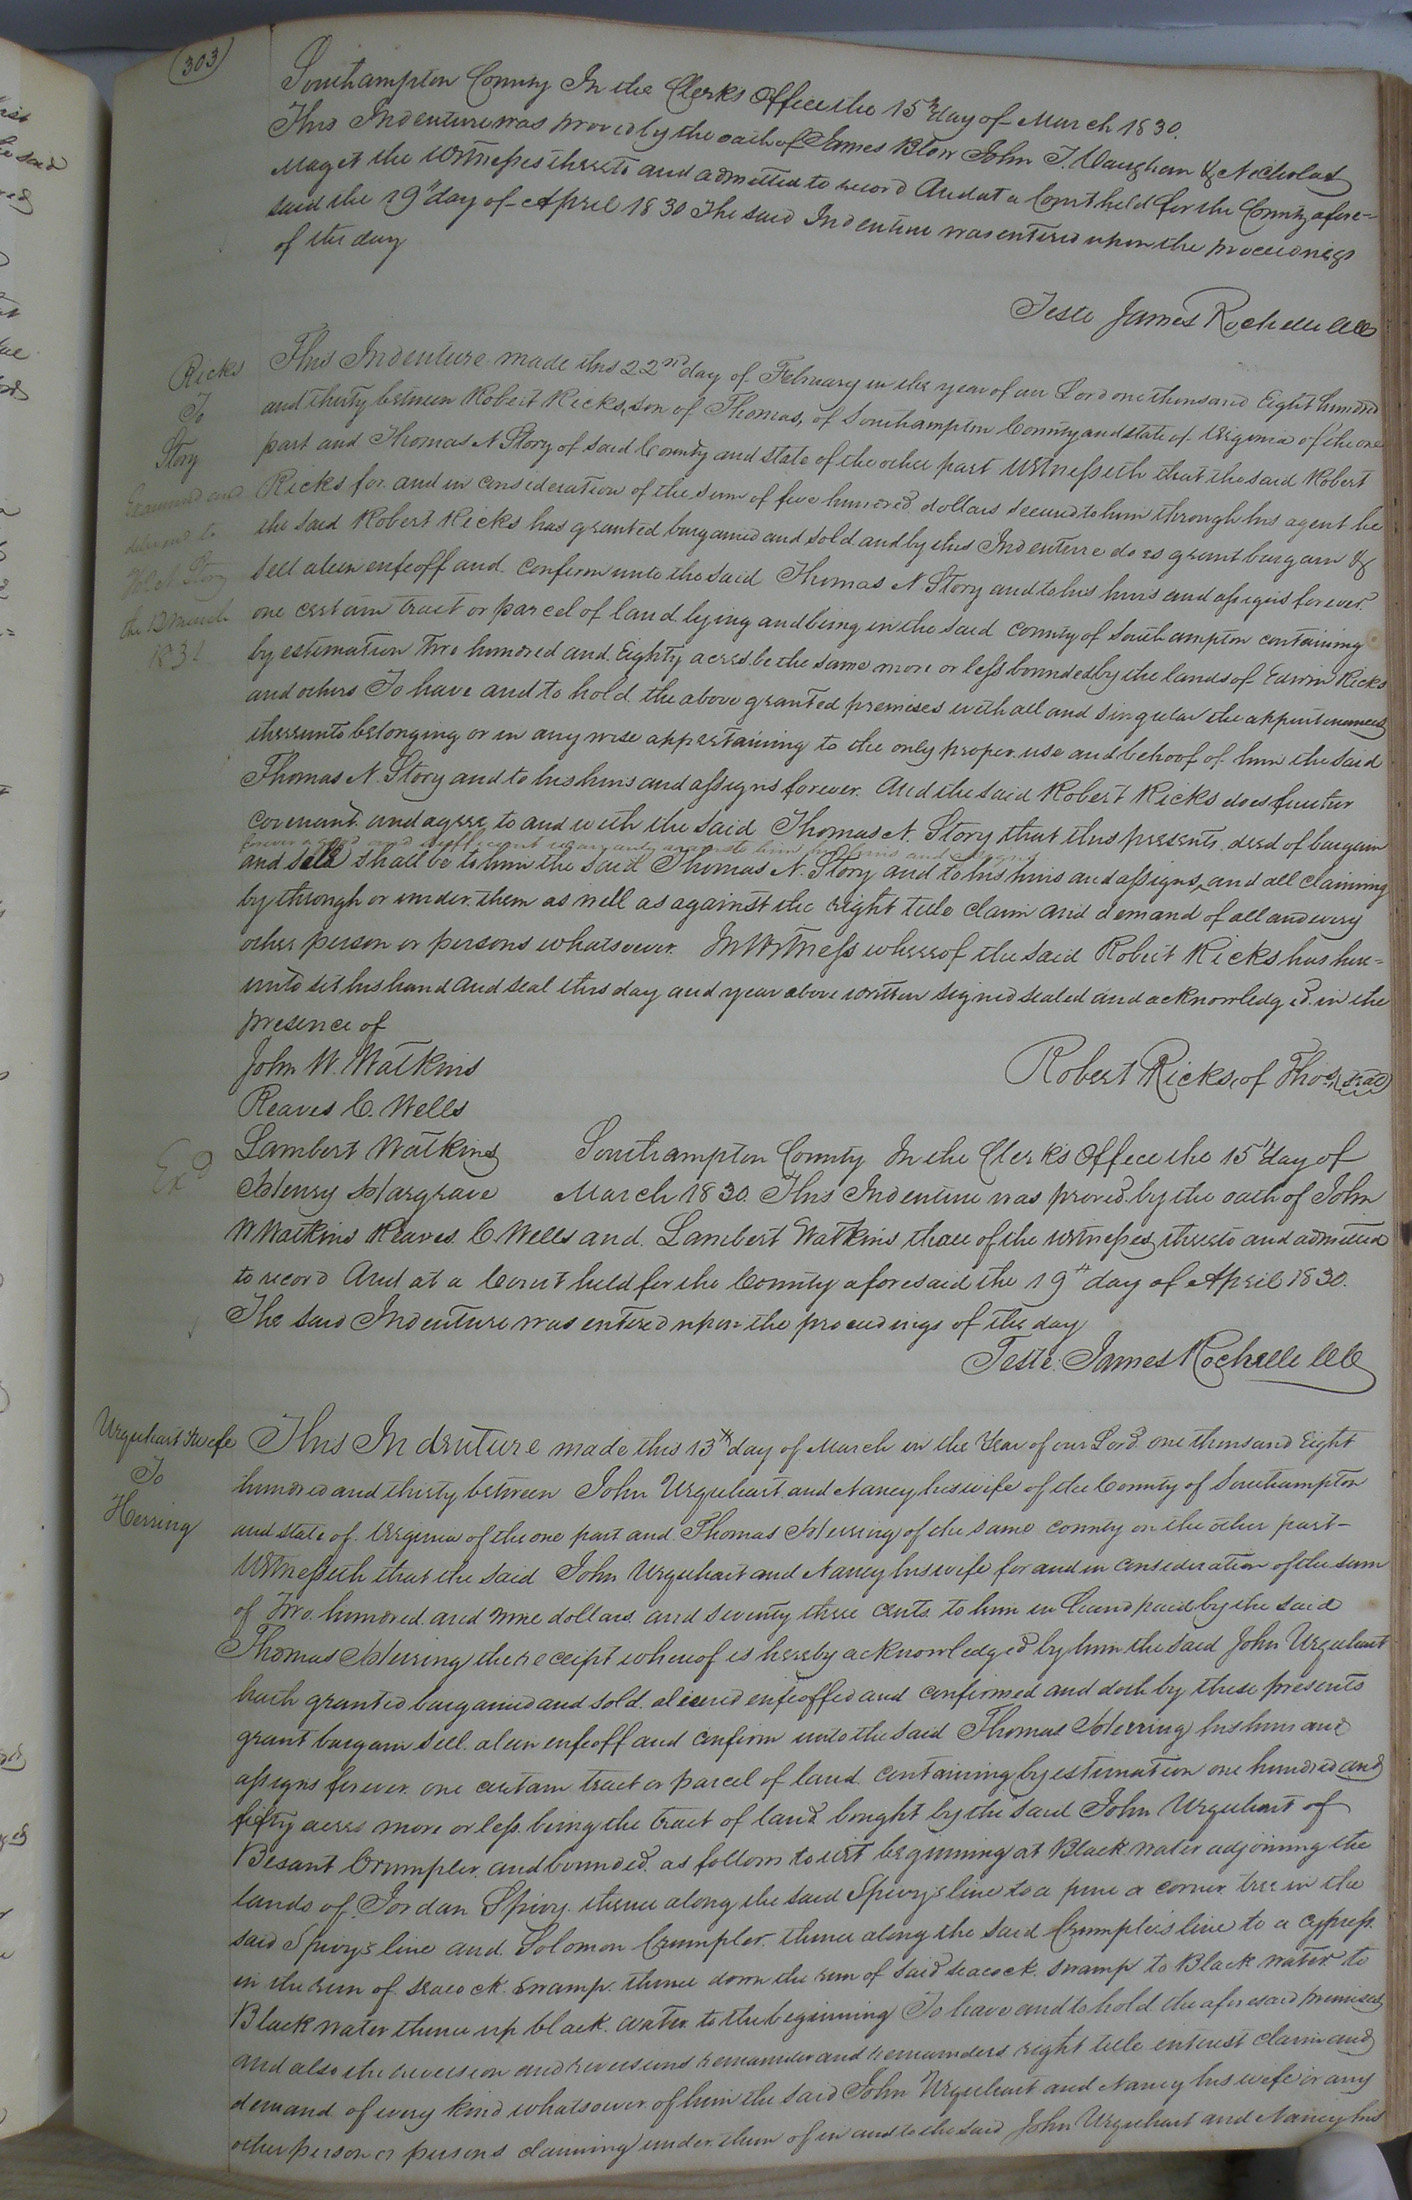 303
Southampton County In the Clerks Office the 15th day of March 1830.
This Indenture was proved by the oath of James Blow John T. Vaughan & Nicholas
Maget the Witnesses thereto and admitted to record And at a Court held for the County afore=
said the 19th day of April 1830 The said Indenture was entered upon the proceedings
of the day
Teste James Rochelle CC
Ricks
To
Story
Examined and
delivered to
Tho. N. Story
the 12 March
1831
This Indenture made this 22nd day of February in the year of our Lord one thousand Eight hundred
and thirty between Robert Ricks, son of Thomas, of Southampton County and state of Virginia of the one
part and Thomas N Story of said County and state of the other part Witnesseth that the said Robert
Ricks for and in consideration of the sum of five hundred dollars secured to him through his agent he
the said Robert Ricks has granted bargained and sold and by this Indenture does grant bargain &
sell alien enfeoff and confirm unto the said Thomas N Story and to his heirs and assigns forever
one certain tract or parcel of land lying and being in the said County of Southampton containing
by estimation Two hundred and Eighty acres be the same more or less bounded by the lands of Edwin Ricks
and others To have and to hold the above granted premises with all and singular the appurtenances
thereunto belonging or in any wise appertaining to the only proper use and behoof of him the said
Thomas N. Story and to his heirs and assigns forever. And the said Robert Ricks does further
covenant and agree to and with the said Thomas N. Story that this presents deed of bargain
and sale shall be to him the said Thomas N. Story and to his heirs and assigns, and all claiming
forever a good and sufficient warranty against him his heirs and assigns
by through or under them as well as against the right title claim and demand of all and every
other person or persons whatsoever. In Witness whereof the said Robert Ricks has here=
unto set his hand and seal this day and year above written signed sealed and acknowledged in the
presence of
John W. Watkins
Robert Ricks, of Thos (seal)
Reaves C. Wells
Exd
Lambert Watkins
Henry Hargrave
Southampton County In the Clerk's Office the 15th day of
March 1830. This Indenture was proved by the oath of John
W Watkins Reaves C. Wells and Lambert Watkins three of the witnesses thereto and admitted
to record And at a Court held for the County aforesaid the 19th day of April 1830.
The said Indenture was entered upon the proceedings of the day
Teste. James Rochelle CC
Urquhart & wife
To
Herring
This Indenture made this 13th day of March in the Year of our Lord one thousand Eight
hundred and thirty between John Urquhart and Nancy his wife of the County of Southampton
and state of Virginia of the one part and Thomas Herring of the same county on the other part—
Witnesseth that the said John Urquhart and Nancy his wife for and in consideration of the sum
of Two hundred and nine dollars and seventy three cents to him in hand paid by the said
Thomas Herring the receipt whereof is hereby acknowledged by him the said John Urquhart
hath granted bargained and sold aliened enfeoffed and confirmed and doth by these presents
grant bargain sell alien enfeoff and confirm unto the said Thomas Herring his heirs and
assigns forever one certain tract or parcel of land containing by estimation one hundred and
fifty acres more or less being the tract of land bought by the said John Urquhart of
Besant Crumpler and bounded as follows to wit beginning at Black water adjoining the
lands of Jordan Spivy thence along the said Spivy's line to a pine a corner tree in the
said Spivy's line and Solomon Crumpler thence along the said Crumpler's line to a cypress
in the run of seacock swamp thence down the run of said seacock swamp to Black water to
Black water thence up black water to the beginning To have and to hold the aforesaid premises
and also the reversion and reversions remainder and remainders right title interest claim and
demand of every kind whatsoever of him the said John Urquhart and Nancy his wife or any
other person or persons claiming under them of in and to the said John Urquhart and Nancy his